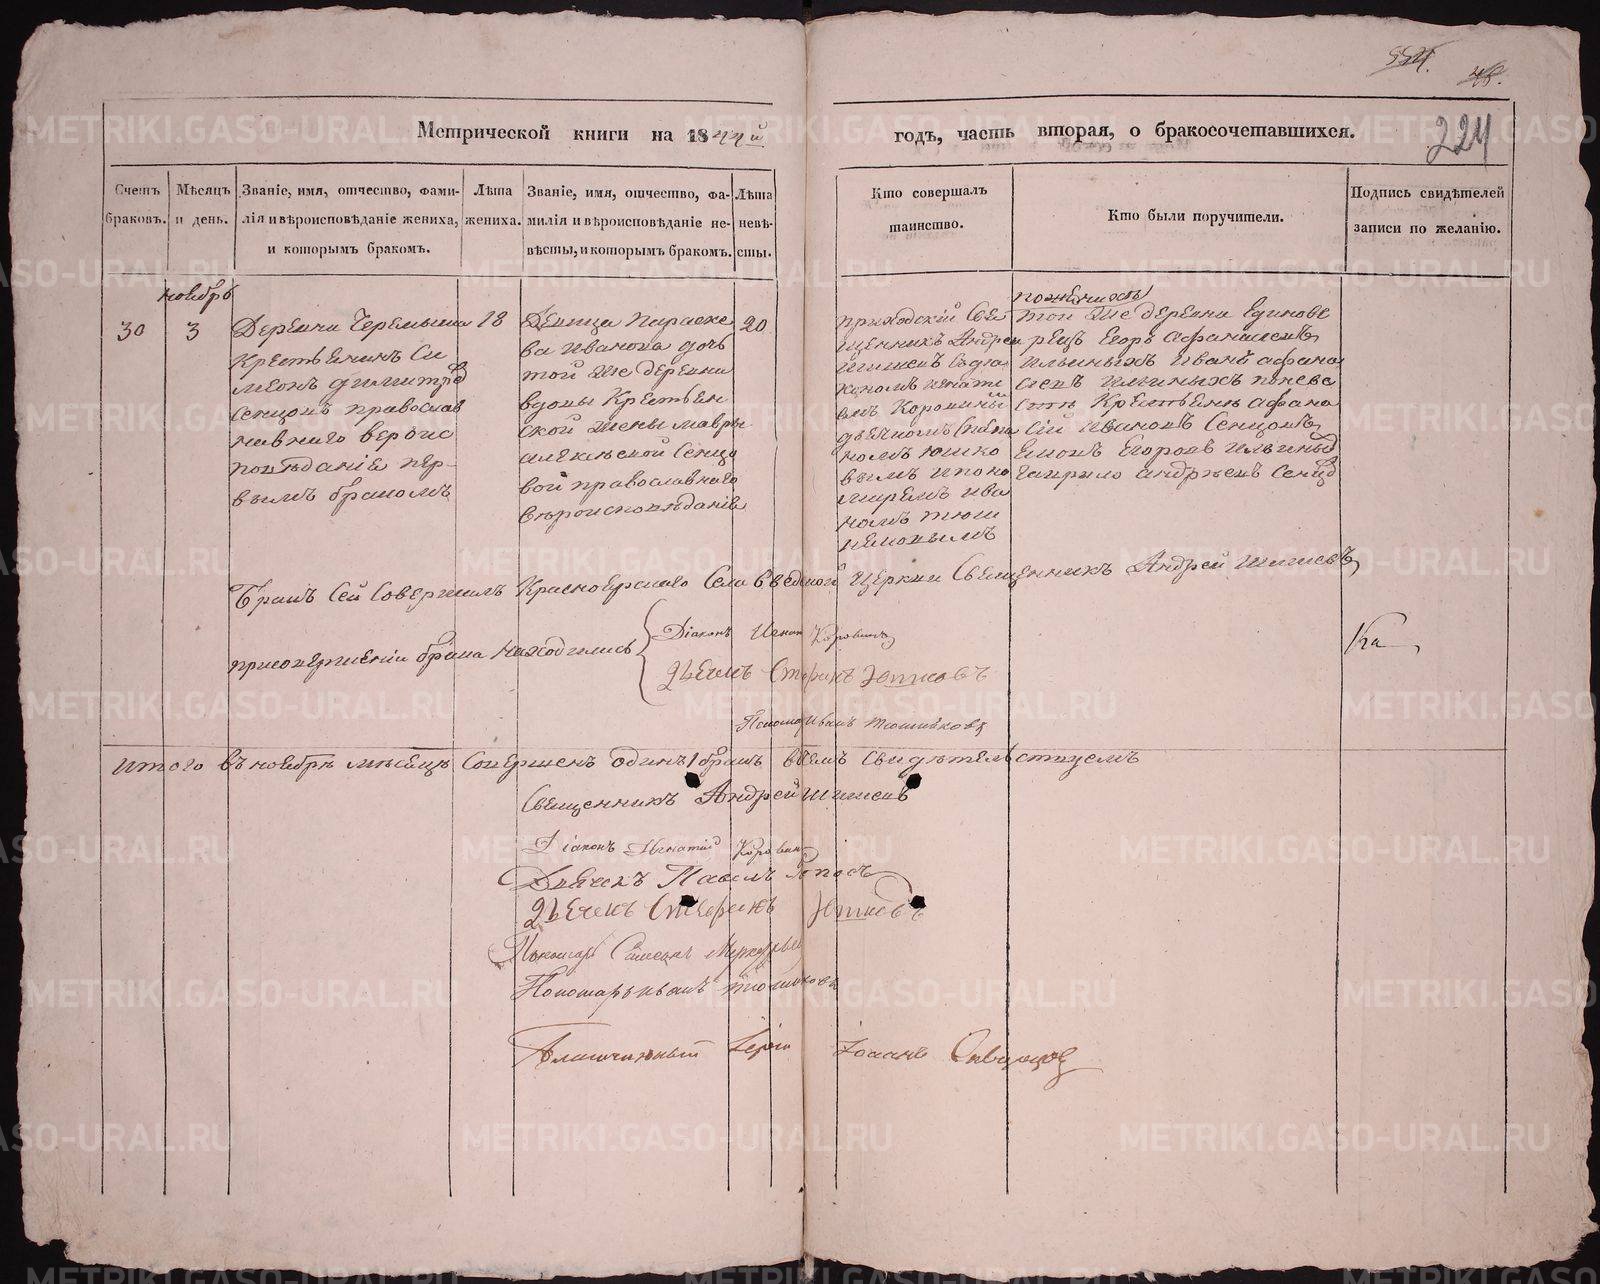 554.
48.
Метрической книги на 1844й
годъ, часть вторая, о бракосочетавшихся.
224
Счетъ браковъ.
Мѣсяцъ и день.
Званіе, имя, отчество, фами-
лія и вѣроисповѣданіе жениха,
и которымъ бракомъ.
Лѣта жениха.
Званіе, имя, отчество, фа-
милія и вѣроисповѣданіе не-
вѣсты, и которымъ бракомъ.
Лѣта невѣ-
сты.
Кто совершалъ
таинство.
Кто были поручители.
Подпись свидѣтелей
записи по желанію.
ноябрь
30
3
Деревни Черемыша
крестьянинъ Си
меонъ Димитрѣ
Сенцовъ православ
навнаго вероис
повѣданіе пер-
вымъ бракомъ
18
Девица Параске
ва Иванова дочь
той же деревни
вдовы Крестьян
ской жены Мавры
Алексѣевой Сенцо
вой православнаго
вѣроисповѣданіе
20
приходскій Свя
щенникъ Андрей
Шишевъ съ дья
кономъ Игнати
емъ Коровины
дьячкомъ
номъ Юшко
вымъ и поно
маремъ Ива
номъ Тюши
нѣковымъ
поженихѣ
той же деревни единове
рецъ Егоръ Афанасьевъ
Ильиныхъ Иванъ Афана
сьевъ Ильиныхъ поневе
стѣ Крестьяне Афана
сій Ивановъ Сенцовъ
Егоровъ Ильины
Гаврило Андреевъ Сенцо
Бракъ Сей Совершилъ Красноярскаго Села Введенской Церкви Священникъ Андрей Шишевъ
присовершеніи брака находились
Діаконъ Игнат Коровинъ
Дьячекъ Стефанъ Юшковъ
Ка
Понома Иванъ Тюшняковъ
Итого въ ноябрѣ мѣсяцѣ Совершенъ один 1 бракъ въ чемъ Свидѣтельствуемъ
Священникъ Андрей Шишевъ
Діаконъ Игнатій Коровин
Дьячекъ Павелъ Попов
Дьячекъ Стефанъ Юшковъ
Пономарь Симеонъ Меркурьев
Пономарь Иванъ Тюшняковъ
Благочинный Іерей Іоаннъ Скворцов